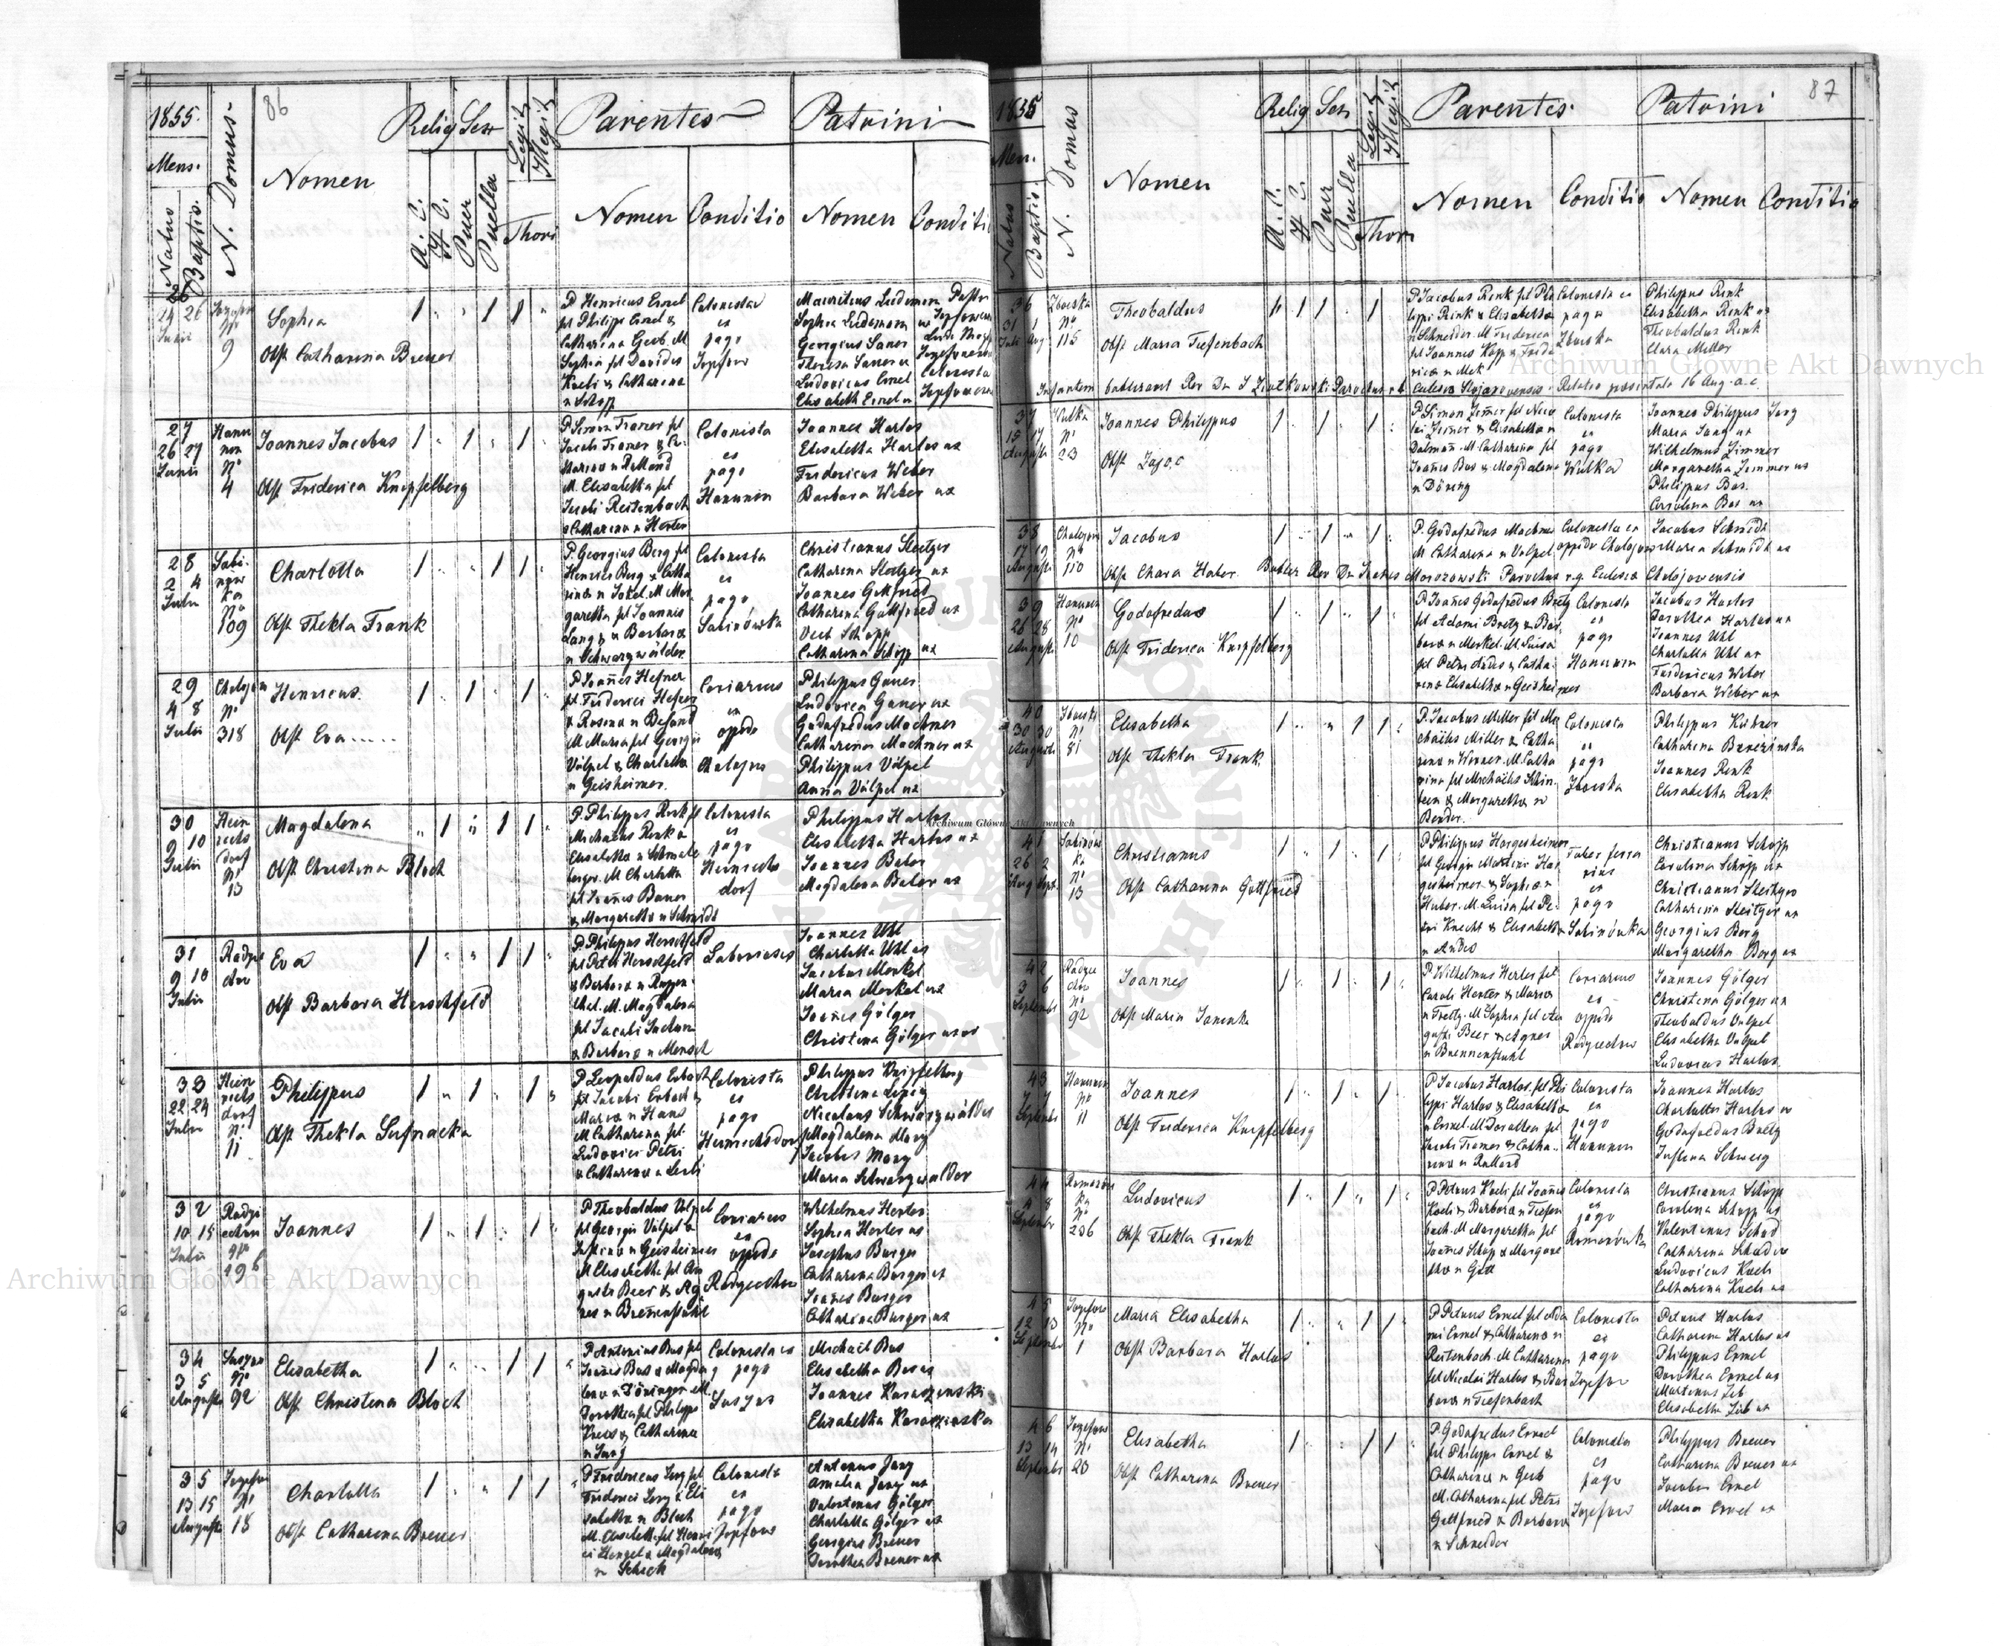 86
1855.
Mens.
Natus
Baptis.
N. Domus
Nomen
Relig
A. C.
H. C.
Sex
Puer
Puella
Legit
Illegit
Thori
Parentes
Nomen
Conditio
Patrini
Nomen
Conditi
26
24 26
Junii
N°
9
Sophia
Obst Catharina Breuer
P Henricus Ermel
fil Philippi Ermel &
Catharina Gerb. M
Sophia fil Davidis
Koeli & Catharina
n Schopp
Colonista
ex
pago
Josefow
Mauritius Ludemann Pastor
Sophia Ludemann ux
Georgius Saner
Theresa Saner ux
Ludovicus Ermel
Elisabeth Ermel ux
27
26 27
Junii
Hanu
nin
N°
4
Joannes Jacobus
Obst Friderica Knipfelberg
P Simon Tramer fil
Jacobi Tramer & Ca-
tharina n Rulland
M. Elisabetha fil
Jacobi Reitenbach
& Catharina n Herter
Colonista
ex
pago
Hanunin
Joannes Harlos
Elisabetha Harlos ux
Fridericus Weber
Barbara Weber ux
28
2 4
Julii
Sabi-
now
ka
No
109
Charlotta
Obst Thekla Frank
P. Georgius Berg fil
Henrici Berg & Catha
rina n Tokel. M Mar
garetha fil Joannis
Lang & n Barbara
n Schwarzwälder
Colonista
ex
pago
Sabinówka
Christianus Steitzer
Catharina Steitzer ux
Joannes Gottfried
Catharina Gottfried ux
Veit Schopp
Catharina Schopp ux
29
4 8
Julii
Chologow
N°
318
Henricus
Obst Eva .....
P Joañes Hefner
fil Friderici Hefner
& Rosina n Befand
M Maria fil Georgii
Völpel & Charlotta
n Geisheimer.
Coriarius
ex
oppido
Chologow
Philippus Ganer
Ludovica Ganer ux
Godofredus Machmer
Catharina Machmer ux
Philippus Völpel
Anna Völpel ux
30
9 10
Julii
Hein
richs
dorf
N°
13
Magdalena
Obst Christina Bloch
P. Philippus Renk fil
Michaelis Renk &
Elisabetha n Schmale
berger. M Charlotta
fil Joañes Bauer
& Margaretha n Schmidt
Colonista
ex
pago
Heinrichs
dorf
Philippus Harlos
Elisabetha Harlos ux
Joannes Baber
Magdalena Baber ux
31
9 10
Julii
Radzie
chow
Eva
Obst Barbara Herschfeld
P. Philippus Herschfeld
fil Petri Herschfeld
& Barbara n Ruppen
thal. M. Magdalena
fil Jacobi Juckum
& Barbara n Mensch
Laboriosus
Joannes Uhl
Charlotta Uhl ux
Jacobus Merkel
Maria Merkel ux
Joañes Gölger
Christina Gölger ux
33
22 24
Julii
Hein
richs
dorf
N°
11
Philippus
Obst Thekla Sufnacka
P Leopoldus Erbach
fil Jacobi Erbach &
Maria n Hans
M Catharina fil
Ludovici Petri
& Catharina n Lerli
Colonista
ex
pago
Heinrichsdorf
Philippus Knipfelberg
Christina Lepsig
Nicolaus Schwarzwälder
Magdalena Mary
Jacobus Mary
Maria Schwarzwälder
32
10 15
Julii
Radzi
echow
N°
196
Joannes
P Theobaldus Völpel
fil Georgii Völpel &
Justina n Geisheimer
M Elisabetha fil Au
gusti Beer & Ag-
nes n Brenenstuhl
Coriarius
ex
oppido
Radziechow
Wilhelmus Herter
Sophia Herter ux
Josephus Burger
Catharina Burger ux
Joañes Burger
Catharina Burger ux
34
3 5
Augusti
Suszno
N°
92
Elisabetha
Obst Christina Bloch
P Antonius Bus fil
Joañes Bus & Magda
lena n Döringer M.
Dorothea fil Philippi
Kreis & Catharina
n Jung
Colonista ex
pago
Suszno
Michael Bus
Elisabetha Bus ux
Joannes Karaszenski
Elisabetha Karaszinska
35
13 15
Augusti
Jozefow
N°
18
Charlotta
Obst Catharina Breuer
P Fridericus Jorg fil
Friderici Jorg & Eli
sabetha n Bloch
M. Elisabetha fil Henri
ci Hengel & Magdalena
n Schick
Colonista
ex
pago
Josefow
Antonius Jorg
Amalia Jorg ux
Valentinus Gölger
Charlotta Gölger ux
Georgius Breuer
Dorothea Breuer ux
87
1855
Men.
Natus
Baptis.
N. Domus
Nomen
Relig
A. C.
H. C.
Sex
Puer
Puella
Legit
Illegit
Thori
Parentes
Nomen
Conditio
Patrini
Nomen
Conditio
36
31 1
Juli Aug.
Zboiska
N°
115
Theobaldus
Obst Maria Tiefenbach
P Jacobus Renk fil Phi
lippi Renk & Elisabetha
n Schneider. M Friderica
fil Joannes Kopp & Fride
rica n Mek
Colonista ex
pago
Zboiska
Philippus Renk
Elisabetha Renk ux
Theobaldus Renk
Clara Miller
Infantem baptizavit Rev Dn J Ziutkowski Parochus r. l. ecclesia Stojanovensis. Relatio praesentata 16 Aug. a. c.
37
15 17
Augusti
Wulka
N°
23
Joannes Philippus
Obst Jajoc
P. Simon Zimer fil Nico
lai Zimer & Elisabetha n
Dalman. M. Catharina fil
Joañes Bus & Magdalena
n Döring
Colonista
ex
pago
Wulka
Joannes Philippus Jung
Maria Jung ux
Wilhelmus Zimmer
Margaretha Zimmer ux
Philippus Bus.
Carolina Bus ux
38
17 19
Augusti
Chologow
N°
110
Jacobus
Obst Chara Haber
P. Godofredus Machmer
M Catharina n Völpel
Colonista ex
oppido Chologow
Jacobus Schmidt
Maria Schmidt ux
Babtiz Rev Dn Morozowski Parochus r.g. Eclesia Chologoviensis
39
26 28
Augusti
Hanunin
N°
10
Godofredus
Obst Friderica Knipfelberg
P Joañes Godofredus Bretz
fil Adami Bretz & Bar
bara n Merkel. M. Luisa
fil Petri Andes & Catha
rina Elisabetha n Geisheimer
Colonista
ex
pago
Hanunin
Jacobus Harlos
Dorothea Harlos ux
Joannes Uhl
Charlotta Uhl ux
Fridericus Weber
Barbara Weber ux
40
30 30
Augusti
N°
81
Elisabetha
Obst Thekla Frank
P. Jacobus Miller fil Mi
chaelis Miller & Catha
rina n Wirner. M. Catha
rina fil Michaelis Schin
bein & Margaretha n
Bender.
Colonista
ex
pago
Zboiska
Philippus Kühner
Catharina Brzezinska
Joannes Renk
Elisabetha Renk
41
26 2
Aug Sept.
Sabinow
ka
N°
13
Christianus
Obst Catharina Gottfried
P Philippus Hargesheimer
fil Georgii Martini Har
gesheimer & Sophia n
Huber. M. Luisa fil Pe-
tri Knecht & Elisabetha
n Andes
Faber ferra
rius
ex
pago
Sabinówka
Christianus Schopp
Carolina Schopp ux
Christianus Steitzer
Catharina Steitzer ux
Georgius Berg
Margaretha Berg ux
42
3 6
September
Radzie
chow
N°
92
Joannes
Obst Maria Janinka
P Wilhelmus Herter fil
Caroli Herter & Maria
n Fretz. M Sophia fil Au
gusti Beer & Agnes
n Brennenstuhl
Coriarius
ex
oppido
Radziechow
Joannes Gölger
Christina Gölger ux
Theobaldus Völpel
Elisabetha Völpel
Ludovicus Harlos
43
7 9
September
Hanunin
N°
11
Joannes
Obst Friderica Knipfelberg
P Jacobus Harlos fil Phi
lippi Harlos & Elisabetha
n Ermel. M Dorothea fil
Jacobi Tramer & Catha-
rina n Rulland
Colonista
ex
pago
Hanunin
Joannes Harlos
Charlotta Harlos ux
Godofredus Bretz
Justina Schweig
44
4 8
September
Romanow
ka
N°
206
Ludovicus
Obst Thekla Frank
P Petrus Koeli fil Joañes
Koeli & Barbara n Tiefen
bach. M Margaretha fil
Joañes Schopp & Margare
tha n Gött
Colonista
ex
pago
Romanówka
Christianus Schopp
Carolina Schopp ux
Valentinus Schad
Catharina Schad ux
Ludovicus Koeli
Catharina Koeli ux
45
12 13
September
Jozefow
N°
1
Maria Elisabetha
Obst Barbara Harlos
P Petrus Ermel fil Ada
mi Ermel & Catharina n
Reitenbach. M Catharina
fil Nicolai Harlos & Bar
bara n Tiefenbach
Colonista
ex
pago
Jozefow
Petrus Harlos
Catharina Harlos ux
Philippus Ermel
Dorothea Ermel ux
Martinus Zeb
Elisabetha Zeb ux
46
13 14
September
Jozefow
N°
20
Elisabetha
Obst Catharina Breuer
P. Godofredus Ermel
fil Philippi Ermel &
Catharina n Gerb
M. Catharina fil Petri
Gottfried & Barbara
n Schneider
Colonista
ex
pago
Jozefow
Philippus Breuer
Catharina Breuer ux
Jacobus Ermel
Maria Ermel ux
Archiwum Główne Akt Dawnych
Archiwum Główne Akt Dawnych
Archiwum Główne Akt Dawnych